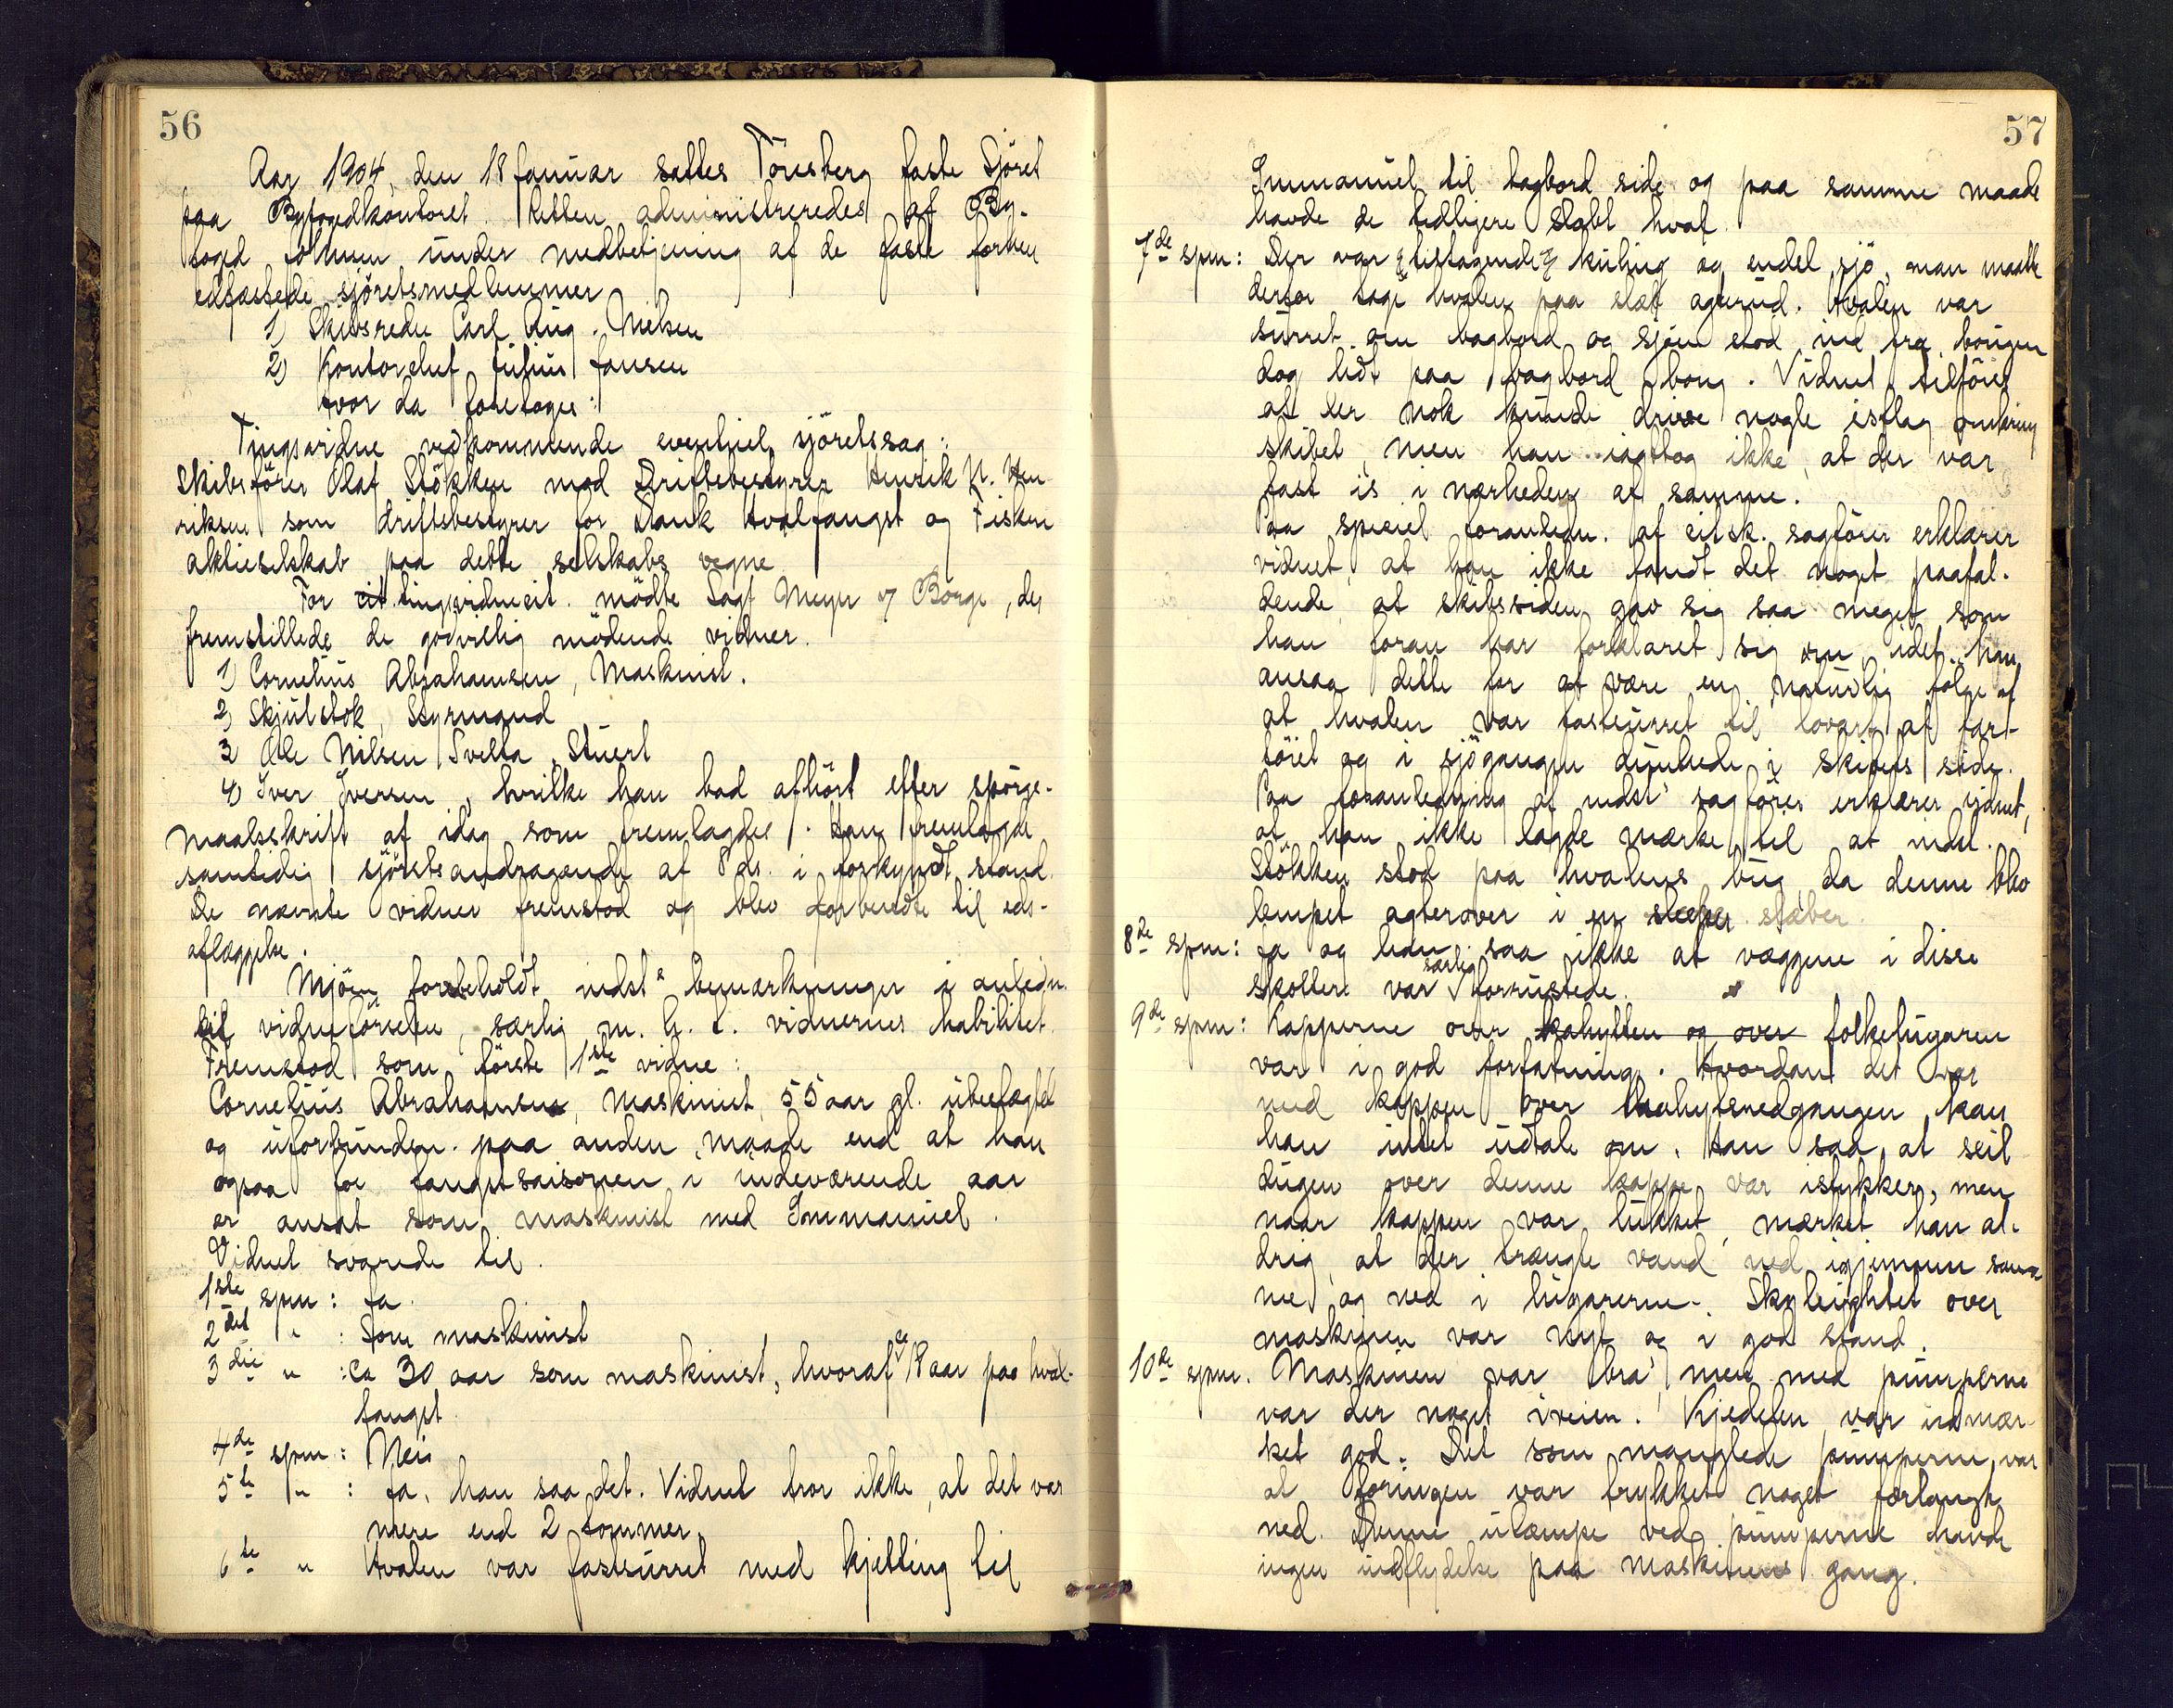 56
Aar 1904, den 18 januar sattes Tönsberg faste Sjöret
paa Byfogedkontoret. Retten administreredes af By-
foged under medbetjening af de faste forhen
edfæstede sjöretsmedlemmer
1) Skibsreder Carl Aug. Nielsen
2) Kontorchef Julius Jansen
Hvor da foretoges:
Tingsvidne vedkommende eventuel sjöretssag:
Skibsförer Olaf Stökken mod Driftsbestyrer Henrik N. Hen
riksen som driftsbestyrer for Dansk Hvalfangst og Fiskeri
aktieselskab paa dette selskabs vegne
For cit. tingsvidnecit. mödte Sagf Meyer og Börge, der
fremstillede de godvillig mödende vidner.
1) Cornelius Abrahamsen, Maskinist.
2) Skjulstok, Styrmand
3 Ole Nilsen Svelta, Stuert
4) Iver Iversen, hvilke han bad afhört efter spörge-
maalsskrift af idag som fremlagdes. Han fremlagde
samtidig sjöretsandragende af 8 ds. i forkyndt stand.
De nævnte vidner fremstod og blev forberedte til eds-
aflæggelse.
Mjöen forbeholdt indst. bemærkninger i anledn.
til vidneförselen, særlig m. h. t. vidnernes habilitet.
Fremstod som förste 1ste vidne:
Cornelius Abrahamsen, maskinist, 55 aar gl. ubeslægtet
og uforbunden paa anden maade end at han
ogsaa for fangstsaisonen i indeværende aar
er ansat som maskinist med Immanuel.
Vidnet svarede til.
1ste spm: Ja.
2det " : Som maskinist
3die " : ca 30 aar som maskinist, hvoraf ca 18 aar paa hval-
fangst.
4de spm: Nei
5te " : Ja, han saa det. Vidnet tror ikke, at det var
mere end 2 tommer.
6te " Hvalen var fastsurret med kjetting til
57
Immanuel til bagbord side og paa samme maade
havde de tidligere slæbt hval.
7de spm: Der var tiltagende kuling og endel sjö, man maatte
derfor tage hvalen paa slæb agterud. Hvalen var
surret om bagbord og sjöen stod ind fra bougen
dog lidt paa bagbord boug. Vidnet tilföier
at der nok kunde drive nogle isflag omkring
skibet, men han iagttog ikke, at der var
fast is i nærheden af samme.
Paa speciel foranledn. af cit. sk. sagförer erklærer
vidnet, at han ikke fandt det noget paafal-
dende, at skibssiden gav sig saa meget som
han foran har forklaret sig om, idet han
ansaa dette for at være en naturlig fölge af
at hvalen var fastsurret til lovart af far-
töiet og i sjögangen dunkede i skibets side.
Paa foranledning af indst. sagförer erklærer vidnet,
at han ikke lagde mærke til at indst.
Stökken stod paa hvalens bug, da denne blev
lempet agterover i en slæper slæber.
8de spm: Ja og han saa ikke at væggene i disse
skotter var særlig forrustede.
9de spm: Kapperne over kahytten og over folkelugaren
var i god forfatning. Hvordan det var
med kappen over kahytsnedgangen kan
han intet udtale om. Han saa, at seil
dugen over denne kappe var istykker, men
naar kappen var lukket, mærket han al-
drig, at der trængte vand ned igjennem sam
me og ned i lugarerne. Skyleightet over
maskinen var nyt og i god stand.
10de spm. Maskinen var bra, men med pumperne
var der noget iveien. Kjedelen var udmær-
ket god. Det som manglede pumperne, var
at foringen var trykket noget forlangt
ned. Denne ulæmpe ved pumperne havde
ingen indflydelse paa maskinens gang.